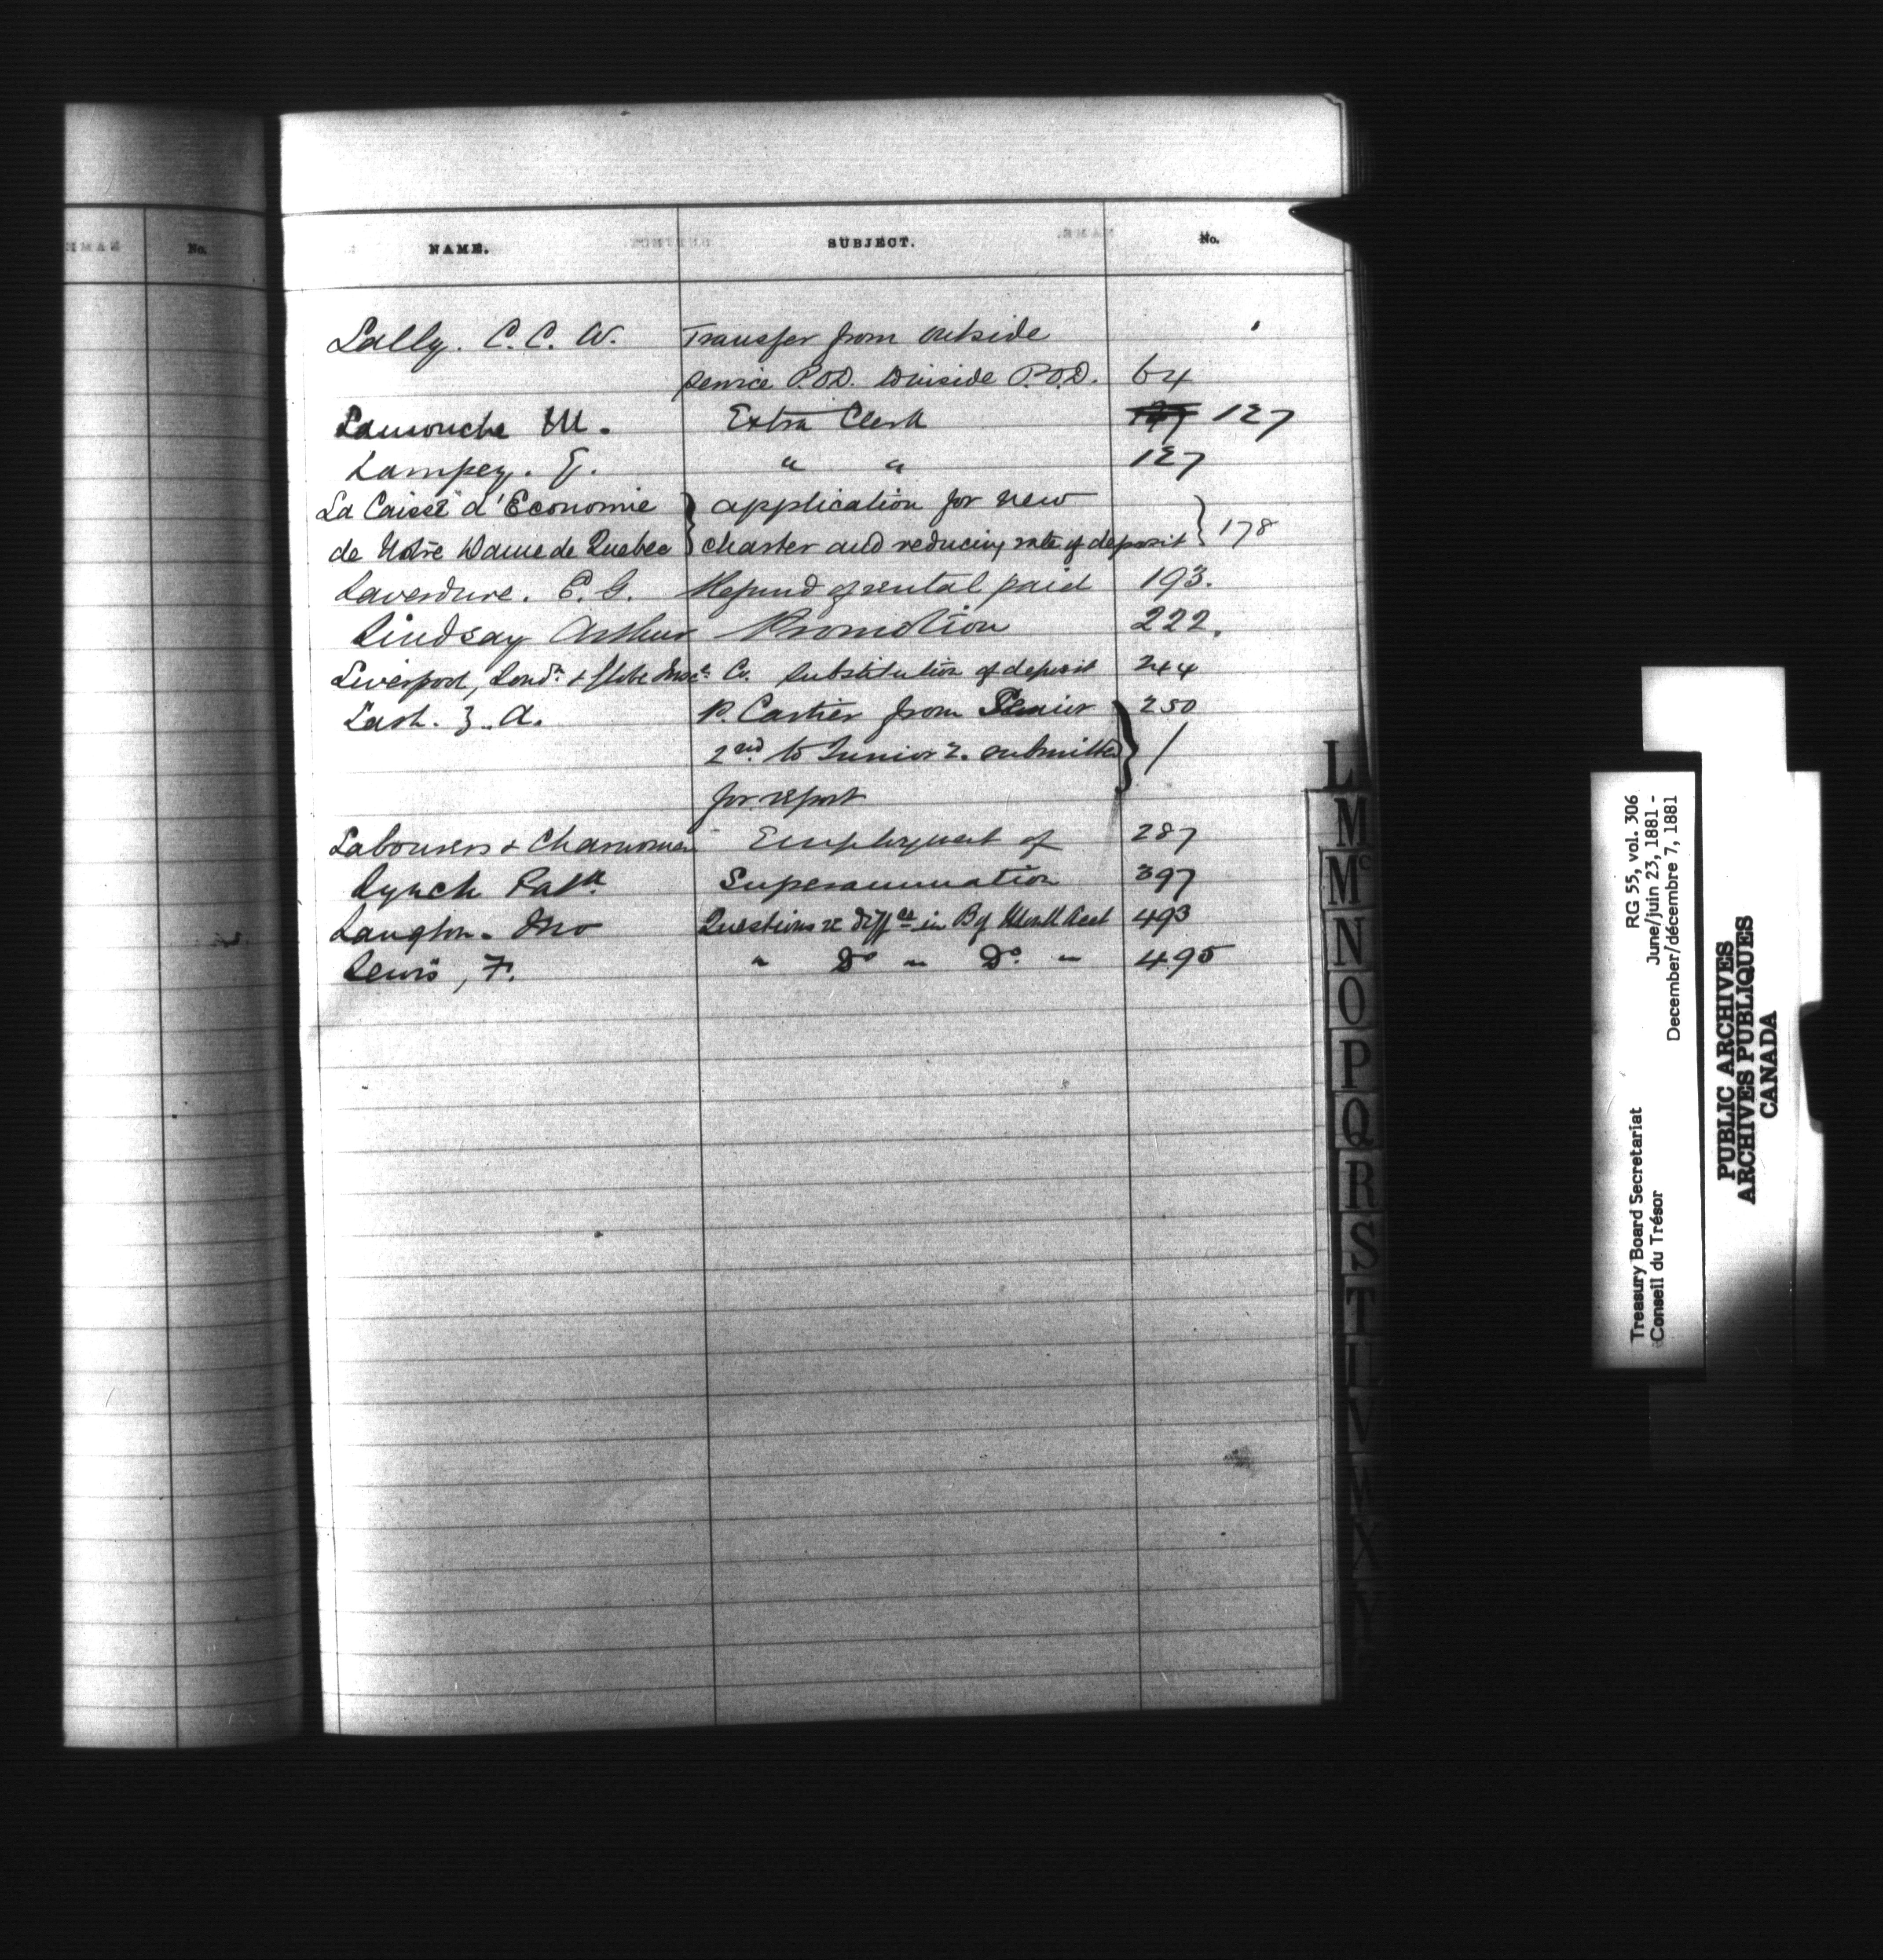 NAME. SUBJECT. No.
Lally. C. C. W. Transfer from outside
service P.O.D. to inside P.O.D. 64
Lamouche M. Extra Clerk 127
Lampey. G. " " 127
La Caisse d'Economie application for new
de Notre Dame de Quebec charter and reducing rate of deposit 178
Laverdure. E. G. Refund of rental paid 193.
Lindsay Arthur Promotion 222.
Liverpool, Lond. & Globe Insce. Co. Substitution of deposit 244
Lash. Z. A. P. Cartier from Senior 250
2nd. to Junior 2. submitted /
for report
Labourers & Charwomen Employment of 287
Lynch Patk. Superannuation 397
Langton. Jno Questions re diffces in B of Montl Acct 493
Lewis, F. " Do " Do. " 495
NAME No.
L
M
Mc
N
O
P
Q
R
S
T
U
V
W
X
Y
Z
RG 55, vol. 306
June/juin 23, 1881 -
December/décembre 7, 1881
Treasury Board Secretariat
Conseil du Trésor
PUBLIC ARCHIVES
ARCHIVES PUBLIQUES
CANADA